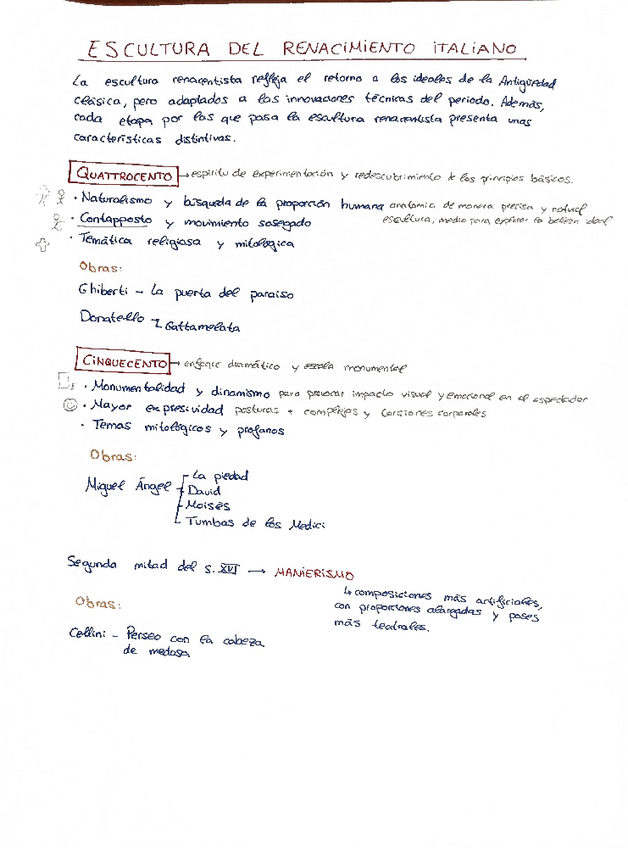 ESCULTURA DEL RENACIMIENTO ITALIANO
La escultura renacentista refleja el retorno a los ideales de la Antigüedad
clásica, pero adaptados a las innovaciones técnicas del periodo. Además,
cada etapa por las que pasa la escultura renacentista presenta unas
características distintivas.
QUATTROCENTO → espíritu de experimentación y redescubrimiento de los principios básicos.
· Naturalismo y búsqueda de la proporción humana anatomía de manera precisa y natural
· Contapposto y movimiento sosegado escultura, medio para explorar la belleza ideal
· Temática religiosa y mitológica
Obras:
Ghiberti - La puerta del paraíso
Donatello Gattamelata
CINQUECENTO → enfoque dramático y escala monumental
· Monumentalidad y dinamismo para provocar impacto visual y emocional en el espectador
· Mayor expresividad posturas + complejas y torsiones corporales
· Temas mitológicos y profanos
Obras:
Miguel Ángel La piedad
David
Moisés
Tumbas de los Medici
Segunda mitad del s. XVI → MANIERISMO
↳ composiciones más artificiales,
con proporciones alargadas y poses
más teatrales.
Obras:
Cellini - Perseo con la cabeza
de medusa